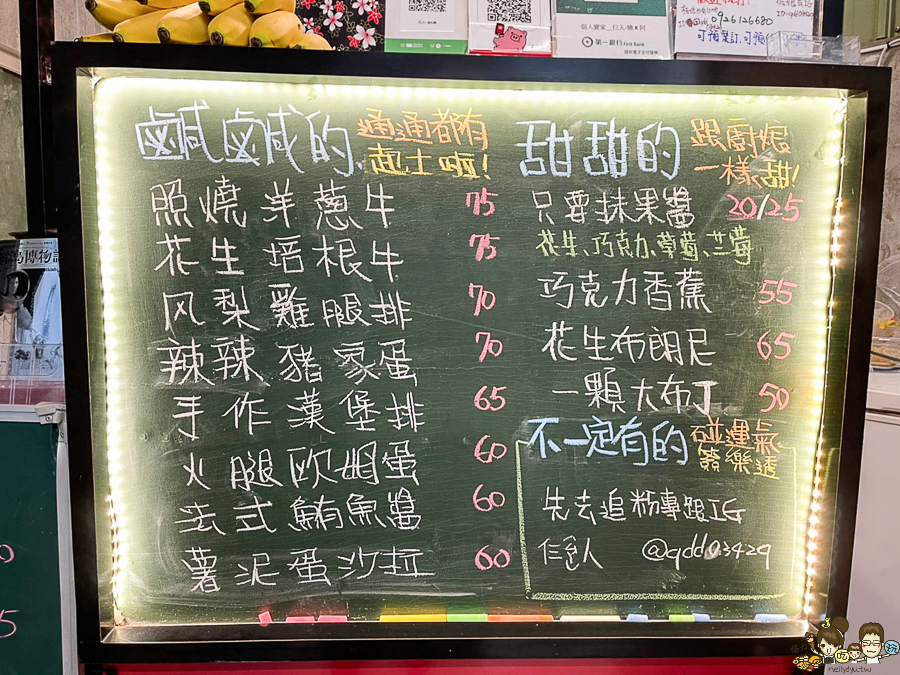 鹹鹹的
通通都有
起士啦!
照燒洋蔥牛 75
花生培根牛 75
风梨雞腿排 70
辣辣豬家蛋 70
手作漢堡排 65
火腿歐姆蛋 60
法式鮪魚醬 60
薯泥蛋沙拉 60
甜甜的
跟廚娘
一樣甜!
只要抹果醬 20/25
花生、巧克力、葡萄、兰莓
巧克力香蕉 55
花生布朗尼 65
一顆大布丁 50
不一定有的
碰運氣
樂透
先去追粉專跟IG
仨邑人 @qdd03429
0926126680
可預訂.可預
第一銀行 First Bank
博物